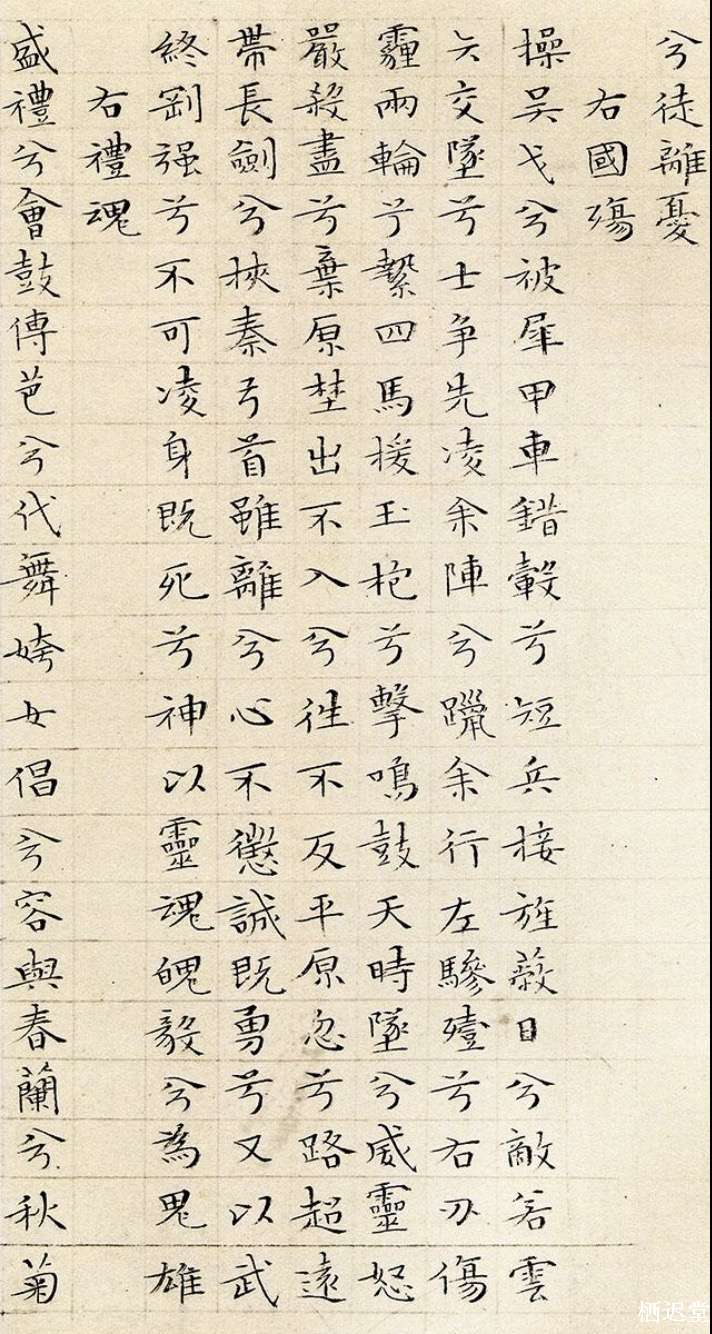 兮徒離憂
右國殤
操吴戈兮被犀甲車錯轂兮短兵接旌蔽日兮敵若雲
矢交墜兮士争先凌余陣兮躐余行左驂殪兮右刃傷
霾兩輪兮縶四馬援玉枹兮擊鳴鼓天時墜兮威靈怒
嚴殺盡兮棄原埜出不入兮往不反平原忽兮路超遠
帶長劍兮挾秦弓首雖離兮心不懲誠既勇兮又以武
終剛强兮不可凌身既死兮神以靈魂魄毅兮為鬼雄
右禮魂
盛禮兮會鼓傳芭兮代舞姱女倡兮容與春蘭兮秋菊
栖迟堂